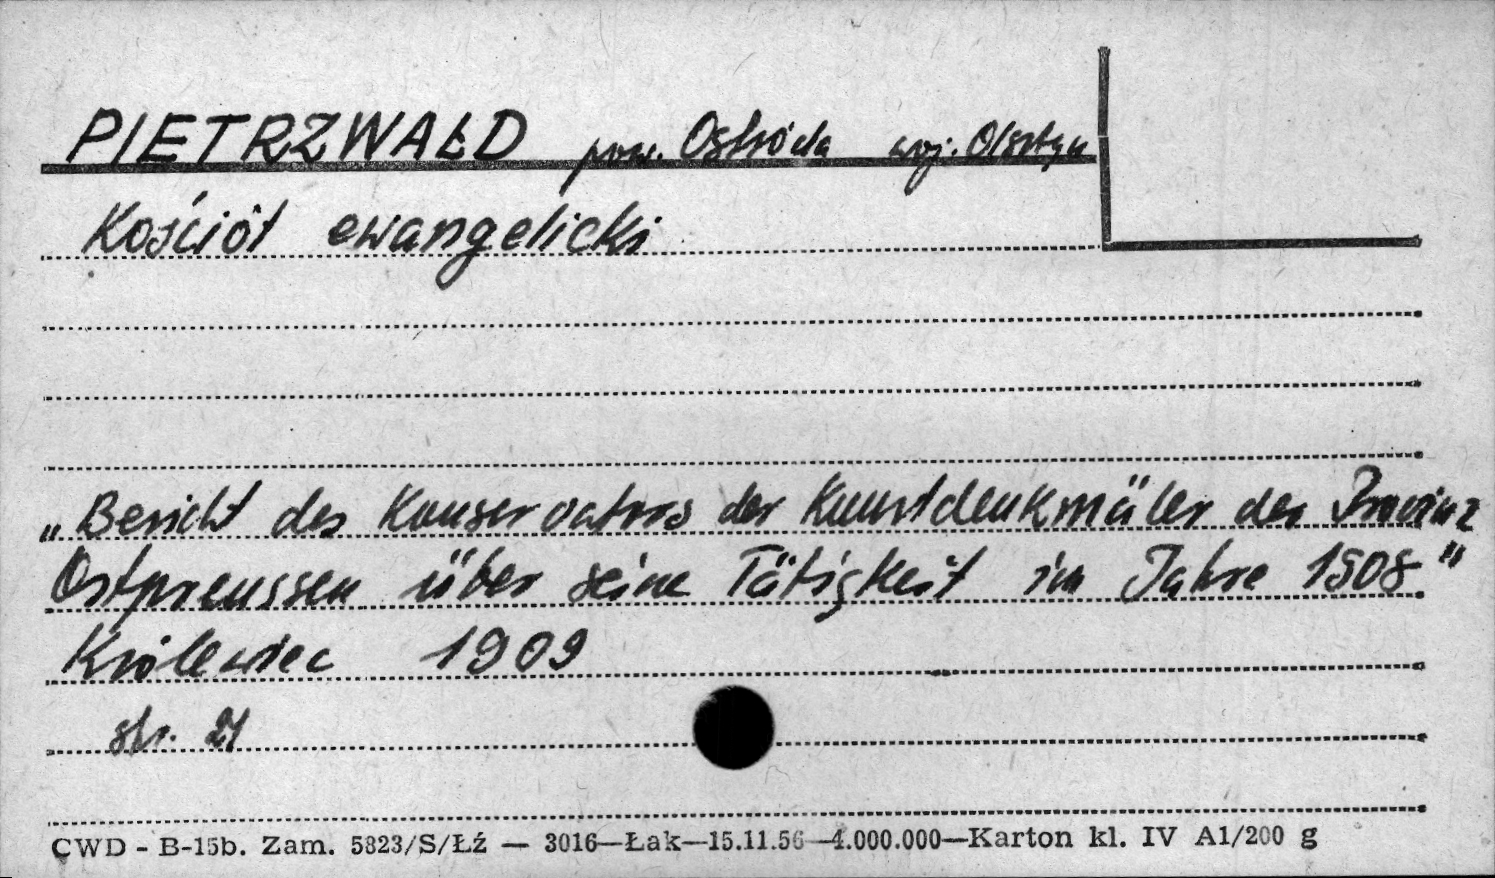 PIETRZWAŁD pow. Ostróda woj. Olsztyn
Kościół ewangelicki
„Bericht des Konservators der Kunstdenkmäler der Provinz
Ostpreussen über seine Tätigkeit im Jahre 1908"
Królewiec 1909
str. 21
CWD - B-15b. Zam. 5823/S/Łź — 3016—Łak—15.11.56—4.000.000—Karton kl. IV A1/200 g